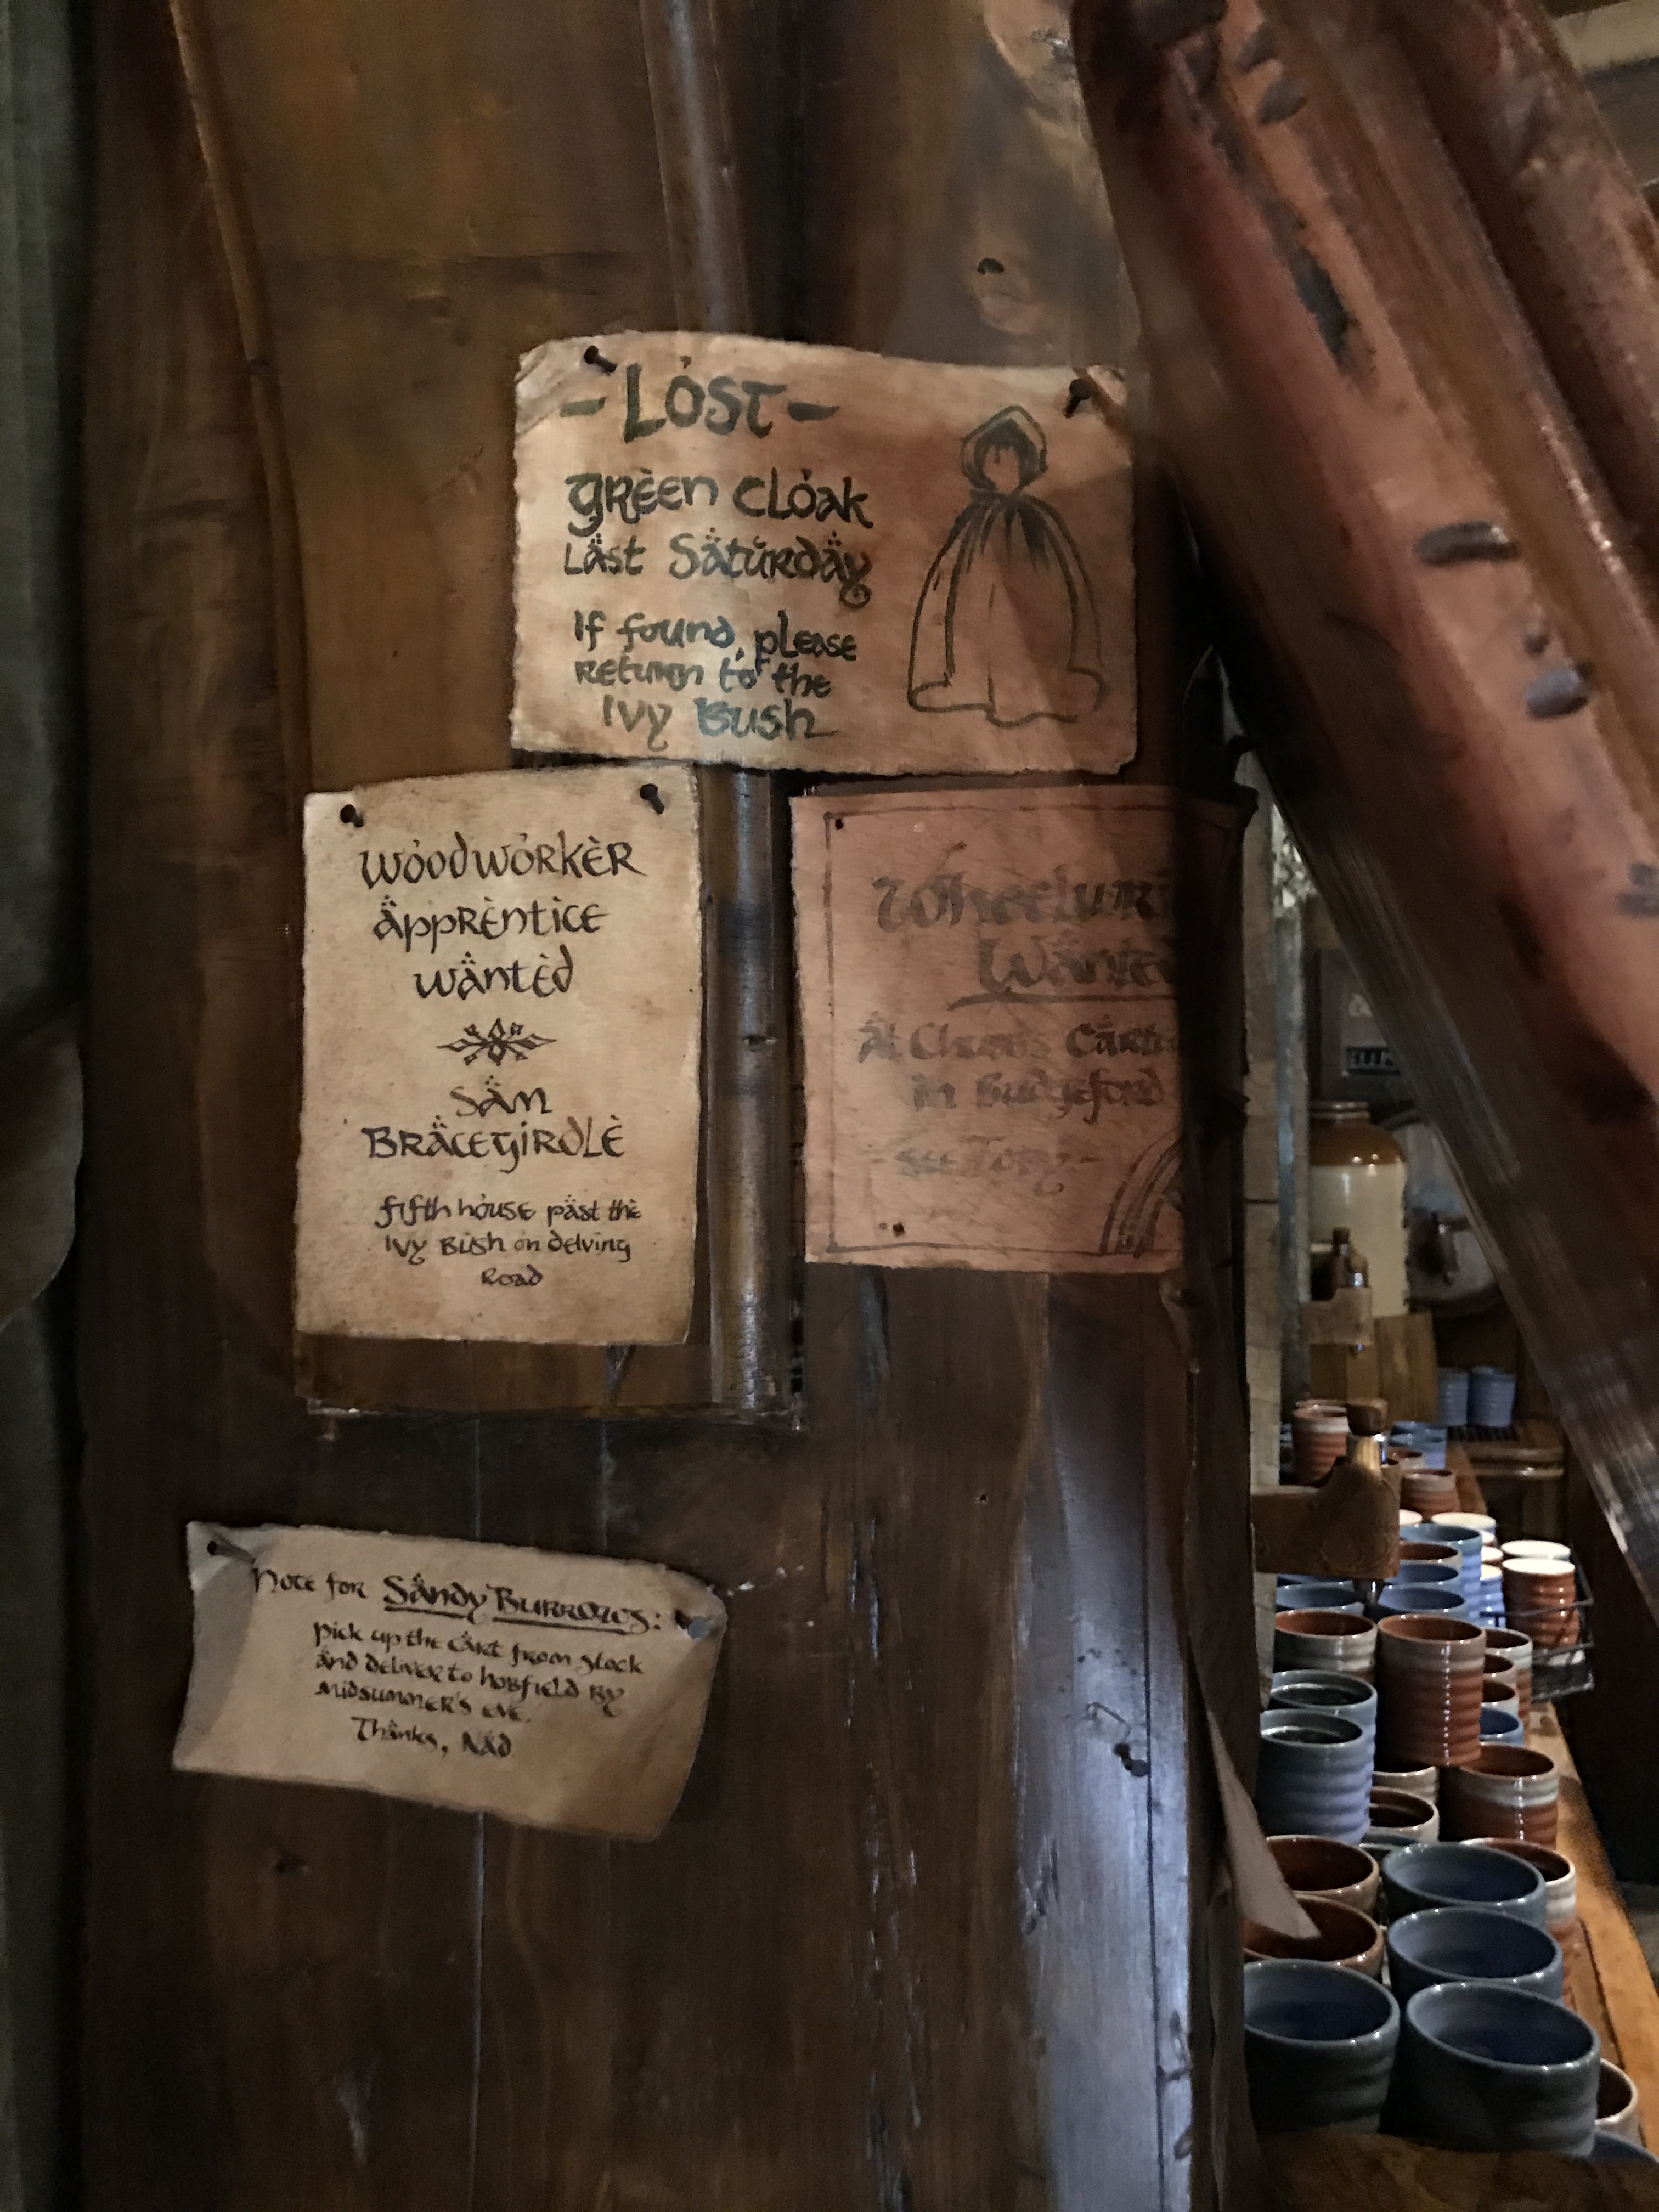 - LȯST -
GRÈEN CLȯAK
LÄST SÄTURDÄY
If found, please
return to the
Ivy Bush
Wȯodwȯrkèr
Äpprèntice
Wäntèd
Säm
Bräcegirdlè
fifth hȯuse päst thè
Ivy Bush on delving
Road
Wänted
Ät Chubbs
in Budgeford
- see Toby -
Note for Sändy Burrows:
pick up the cärt from Stock
änd deliver to hobfield by
midsummer's eve.
Thänks, Näd